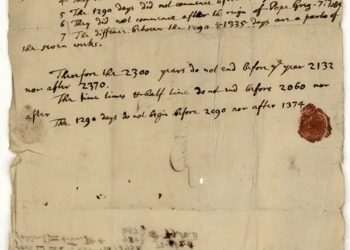 5 The 1290 days did not commence
6 They did not commence after the reign of Pope Greg. 7th
7 The difference between the 1290 & 1335 days are a parte of
the seven weeks.
Therefore the 2300 years do not end before ye year 2132
nor after 2370.
The time times & half time do not end before 2060 nor
after
The 1290 days do not begin before 2090 nor after 1374